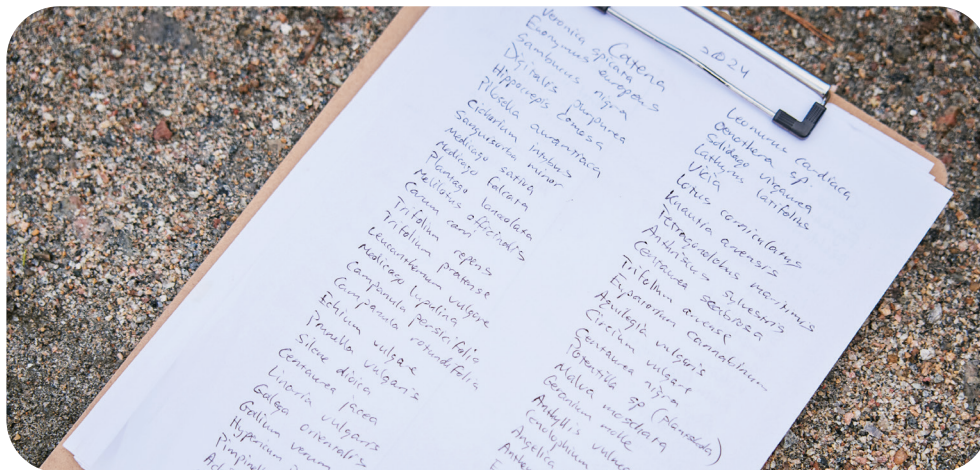 Catena
2024
Veronica spicata
Euonymus europeus
Sambucus nigra
Digitalis purpurea
Hippocrepis comosa
Pilosella aurantiaca
Cichorium intybus
Sanguisorba minor
Medicago sativa
Medicago falcata
Plantago lanceolata
Melilotus officinalis
Carum carvi
Trifolium repens
Trifolium pratense
Leucanthemum vulgare
Medicago lupulina
Campanula persicifolia
Campanula rotundifolia
Echium vulgare
Prunella vulgaris
Silene dioica
Centaurea jacea
Linaria vulgaris
Galega orientalis
Galium verum
Leonurus cardiaca
Oenothera sp.
Solidago virgaurea
Lathyrus latifolius
Vicia
Lotus corniculatus
Knautia arvensis
Tetragonolobus maritimus
Anthriscus sylvestris
Centaurea scabiosa
Trifolium arvense
Eupatorium cannabinum
Aquilegia vulgaris
Circium vulgare
Centaurea nigra
Potentilla sp
Malva moschata
Geranium molle
Anthyllis
Angelica